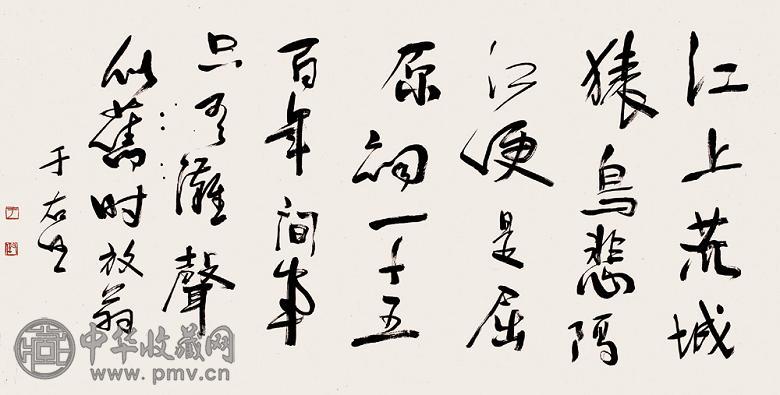 江上荒城
猿鳥悲隔
江便是屈
原祠一千五
百年间事
只有灘聲
似舊时放翁
于右任
中华收藏网
www.pmv.cn